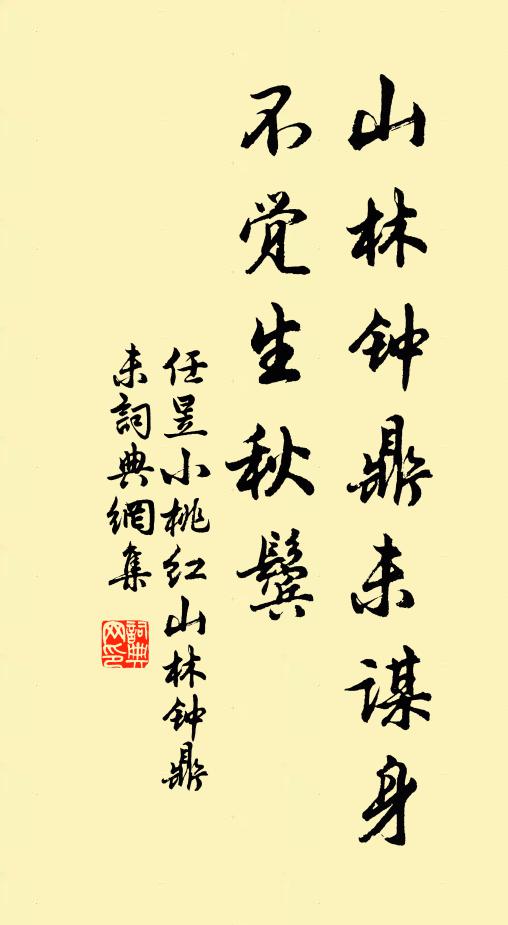 山林钟鼎未谋身
不觉生秋鬓
任昱小桃红山林钟鼎
未詞典網集
詞典
网印